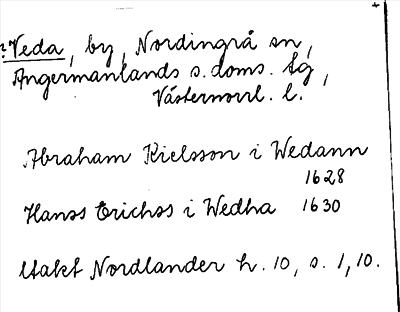 ?Veda, by, Nordingrå sn,
Ångermanlands s. doms. tg,
Västernorrl. l.
Abraham Kielsson i Wedann
1628
Hanss Erichss i Wedha 1630
Utakt Nordlander h. 10, s. 1, 10.